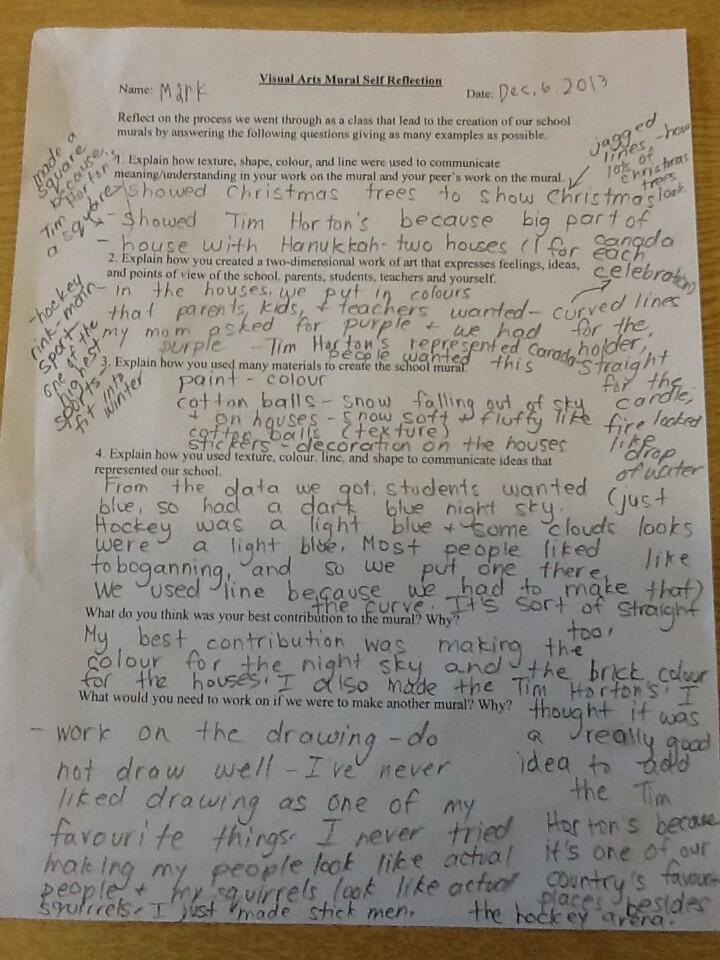 Visual Arts Mural Self Reflection
Name: Mark
Date: Dec. 6. 2013
Reflect on the process we went through as a class that lead to the creation of our school
murals by answering the following questions giving as many examples as possible.
made a
square
because
Tim Horton's
a square
1. Explain how texture, shape, colour, and line were used to communicate
meaning/understanding in your work on the mural and your peer's work on the mural.
jagged
lines - how
lots of
Christmas
trees
look
showed Christmas trees to show Christmas
- showed Tim Horton's because big part of
canada
- house with Hanukkah - two houses (1 for each
celebration)
2. Explain how you created a two-dimensional work of art that expresses feelings, ideas,
and points of view of the school. parents, students, teachers and yourself.
- in the houses, we put in colours
that parents, kids, + teachers wanted -
my mom asked for purple + we had
purple - Tim Horton's represented Canada
people wanted this
curved lines
for the
holder,
straight
for the
candle,
fire looked
like
drop
of water
-hockey
rink - main
sport
one of the
highest
sports,
fit into
winter
3. Explain how you used many materials to create the school mural
paint - colour
cotton balls - snow falling out of sky
+ on houses - snow soft + fluffy like
cotton balls (texture)
stickers - decoration on the houses
4. Explain how you used texture, colour, line, and shape to communicate ideas that
represented our school.
From the data we got, students wanted
blue, so had a dark blue night sky.
Hockey was a light blue + some clouds
were a light blue. Most people liked
toboganning, and so we put one there.
We used line because we had to make
the curve. It's sort of straight
too.
(just
looks
like
that)
What do you think was your best contribution to the mural? Why?
My best contribution was making the
colour for the night sky and the brick colour
for the houses. I also made the Tim Horton's. I
thought it was
a really good
idea to add
the Tim
Horton's because
it's one of our
country's favourite
places besides
the hockey arena.
What would you need to work on if we were to make another mural? Why?
- work on the drawing - do
not draw well - I've never
liked drawing as one of my
favourite things. I never tried
making my people look like actual
people + my squirrels look like actual
squirrels. I just made stick men.